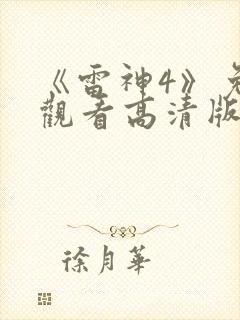 《雷神4》免
觀看高清版
徐月華